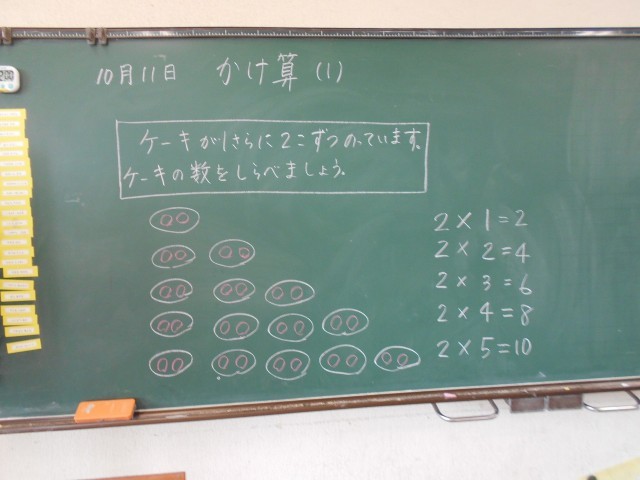 10月11日 かけ算(1)
ケーキが1さらに2こずつのっています。
ケーキの数をしらべましょう。
2×1=2
2×2=4
2×3=6
2×4=8
2×5=10